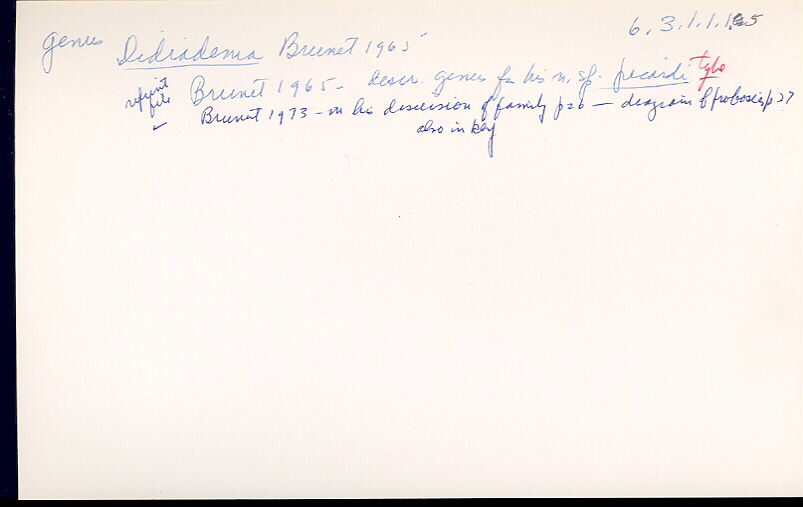 6.3.1.1.1.65
genus Didiadema Brunet 1965
reprint file ✓
Brunet 1965 - descr. genus for his n. sp. picardi type
Brunet 1973 - in his discussion of family p26 — diagram of proboscis p27
also in key